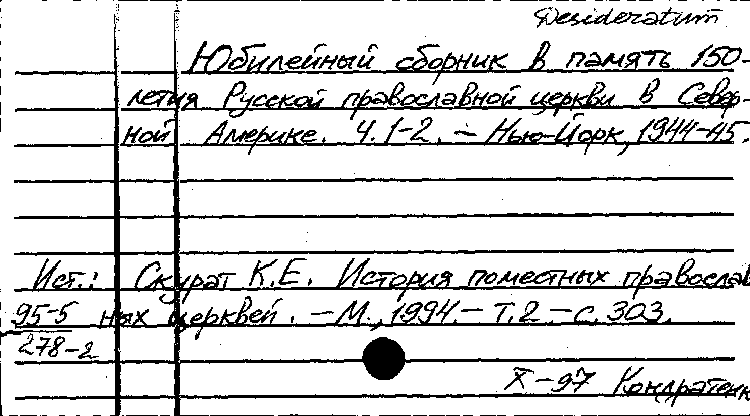 Desideratum
Юбилейный сборник в память 150-
летия Русской православной церкви в Север-
ной Америке. Ч.1-2. – Нью-Йорк, 1944-45.
Ист.: Скурат К.Е. История поместных православ
95-5 ных церквей. – М., 1994. – Т.2 – с. 303.
278-2
X-97 Кондратенк